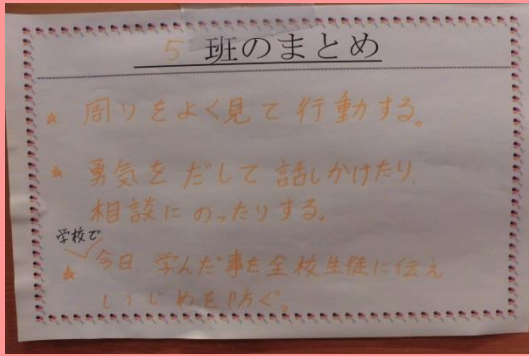 5 班のまとめ
☆ 周りをよく見て行動する。
☆ 勇気をだして話しかけたり、
相談にのったりする。
学校で
☆ 今日、学んだ事を全校生徒に伝え
いじめを防ぐ。